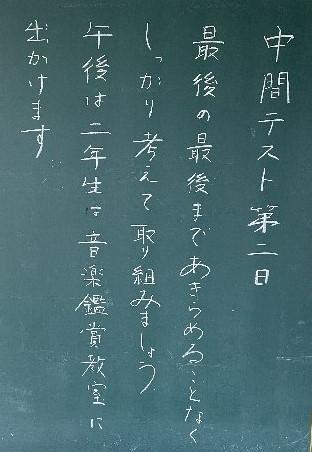 中間テスト第二日
最後の最後まであきらめることなく
しっかり考えて取り組みましょう
午後は二年生は音楽鑑賞教室に
出かけます